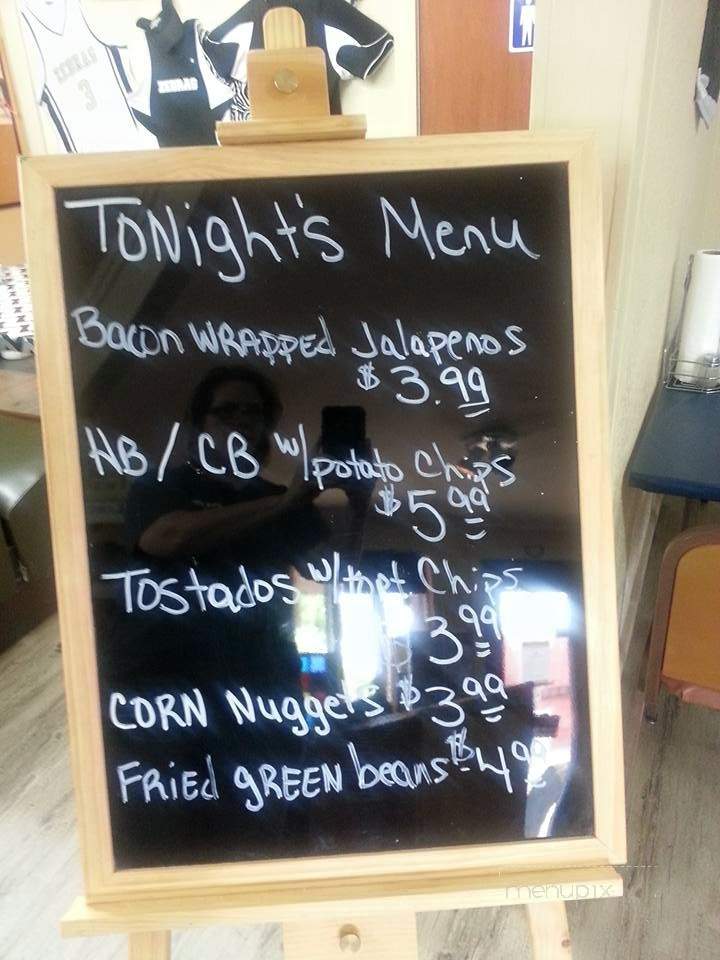 TONight's Menu
Bacon WRAPPEd Jalapenos
$3.99
HB / CB w/potato Chips
$5 99
Tostados w/ Chips
3 99
CORN Nuggets $3 99
FRiEd gREEN beans $4 99
menupix
3